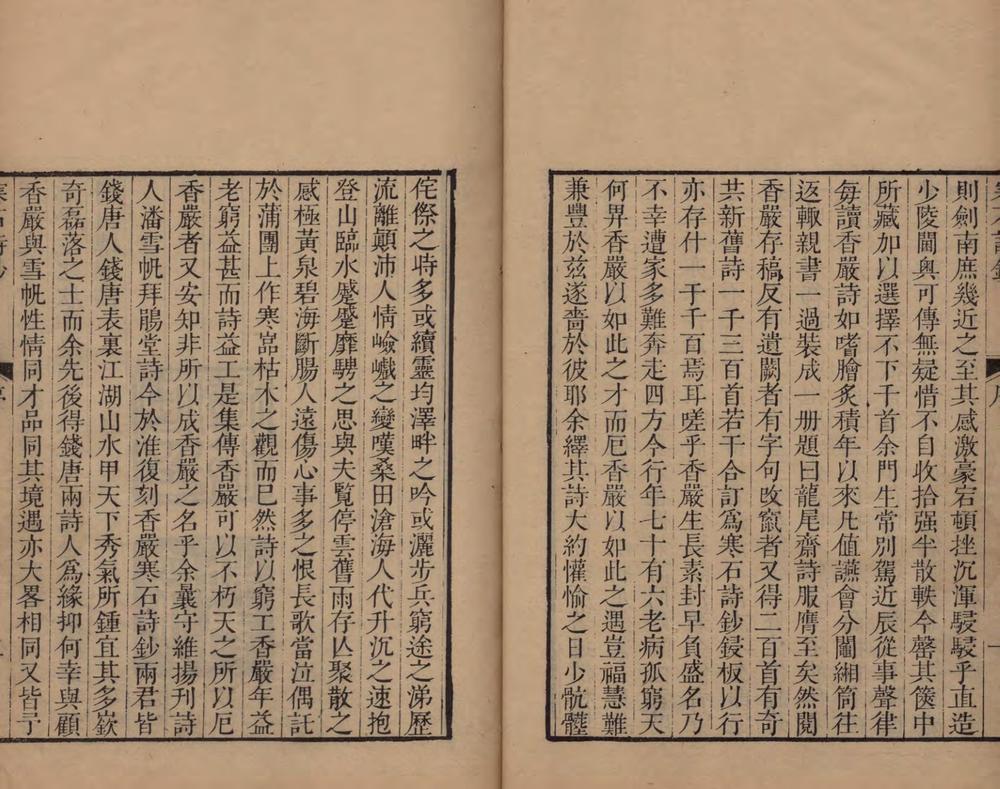 則劍南庶幾近之至其感激豪宕頓挫沉渾駸駸乎直造
少陵閫奧可傳無疑惜不自收拾强半散軼今罄其篋中
所藏加以選擇不下千首余門生常別駕近辰從事聲律
每讀香嚴詩如嗜膾炙積年以來凡值讌會分鬮緗筒往
返輙親書一過裝成一册題曰龍尾齋詩服膺至矣然閱
香嚴存稿反有遺闕者有字句改竄者又得二百首有奇
共新舊詩一千三百首若干合訂爲寒石詩鈔鋟板以行
亦存什一于千百焉耳嗟乎香嚴生長素封早負盛名乃
不幸遭家多難奔走四方今行年七十有六老病孤窮天
何畀香嚴以如此之才而厄香嚴以如此之遇豈福慧難
兼豐於兹遂嗇於彼耶余繹其詩大約懽愉之日少骯髒
侘傺之時多或續靈均澤畔之吟或灑步兵窮途之涕歷
流離顛沛人情嶮巇之變嘆桑田滄海人代升沉之速抱
登山臨水蹙蹙靡騁之思與夫覽停雲舊雨存亾聚散之
感極黃泉碧海斷腸人遠傷心事多之恨長歌當泣偶託
於蒲團上作寒嵓枯木之觀而已然詩以窮工香嚴年益
老窮益甚而詩益工是集傳香嚴可以不朽天之所以厄
香嚴者又安知非所以成香嚴之名乎余曩守維揚刊詩
人潘雪帆拜鵑堂詩今於淮復刻香嚴寒石詩鈔兩君皆
錢唐人錢唐表裏江湖山水甲天下秀氣所鍾宜其多欽
奇磊落之士而余先後得錢唐兩詩人爲緣抑何幸與顧
香嚴與雪帆性情同才品同其境遇亦大畧相同又皆予